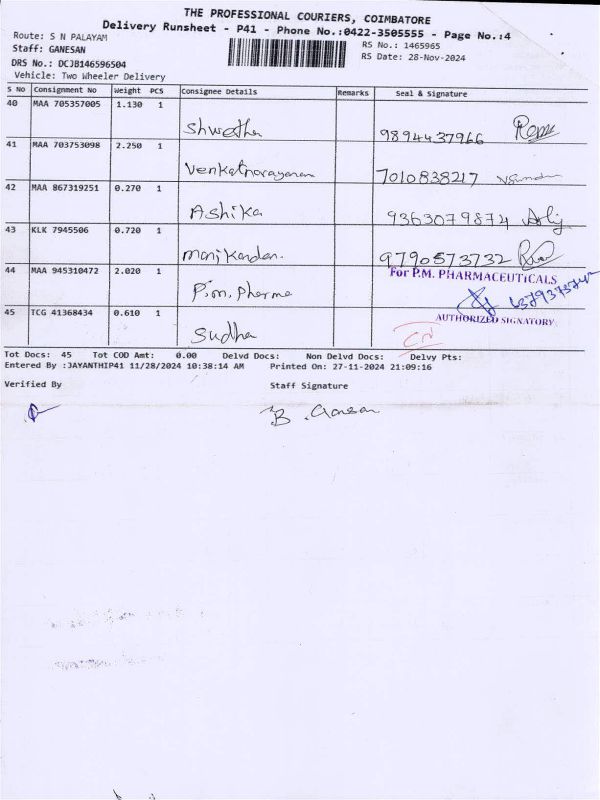 THE PROFESSIONAL COURIERS, COIMBATORE
Delivery Runsheet - P41 - Phone No.:0422-3505555 - Page No.:4
Route: S N PALAYAM
RS No.: 1465965
Staff: GANESAN
RS Date: 28-Nov-2024
DRS No.: DCJB146596504
Vehicle: Two Wheeler Delivery
S No Consignment No Weight PCS Consignee Details Remarks Seal & Signature
40 MAA 705357005 1.130 1
Shwetha 9894437966
41 MAA 703753098 2.250 1
Venkatnarayanan 7010838217
42 MAA 867319251 0.270 1
Ashika 9363079874
43 KLK 7945506 0.720 1
Manikandan. 9790573732
44 MAA 945310472 2.020 1
For P.M. PHARMACEUTICALS
P.m. Pharma
AUTHORIZED SIGNATORY
45 TCG 41368434 0.610 1
Sudha
Tot Docs: 45 Tot COD Amt: 0.00 Delvd Docs: Non Delvd Docs: Delvy Pts:
Entered By :JAYANTHIP41 11/28/2024 10:38:14 AM Printed On: 27-11-2024 21:09:16
Verified By Staff Signature
B. Ganesan